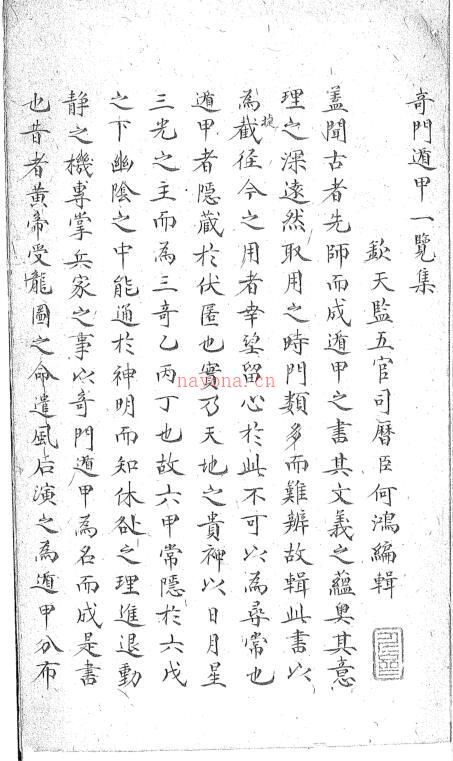 奇門遁甲一覽集
欽天監五官司曆臣何鴻編輯
蓋聞古者先師而成遁甲之書其文義之蘊奥其意
理之深遠然取用之時門類多而難辨故輯此書以
為截徑今之用者幸望留心於此不可以為尋常也
捷
遁甲者隱藏於伏匿也實乃天地之貴神以日月星
三光之主而為三奇乙丙丁也故六甲常隱於六戊
之下幽陰之中能通於神明而知休咎之理進退動
静之機專掌兵家之事以奇門遁甲為名而成是書
也昔者黃帝受龍圖之命遣風后演之為遁甲分布
nayona.cn